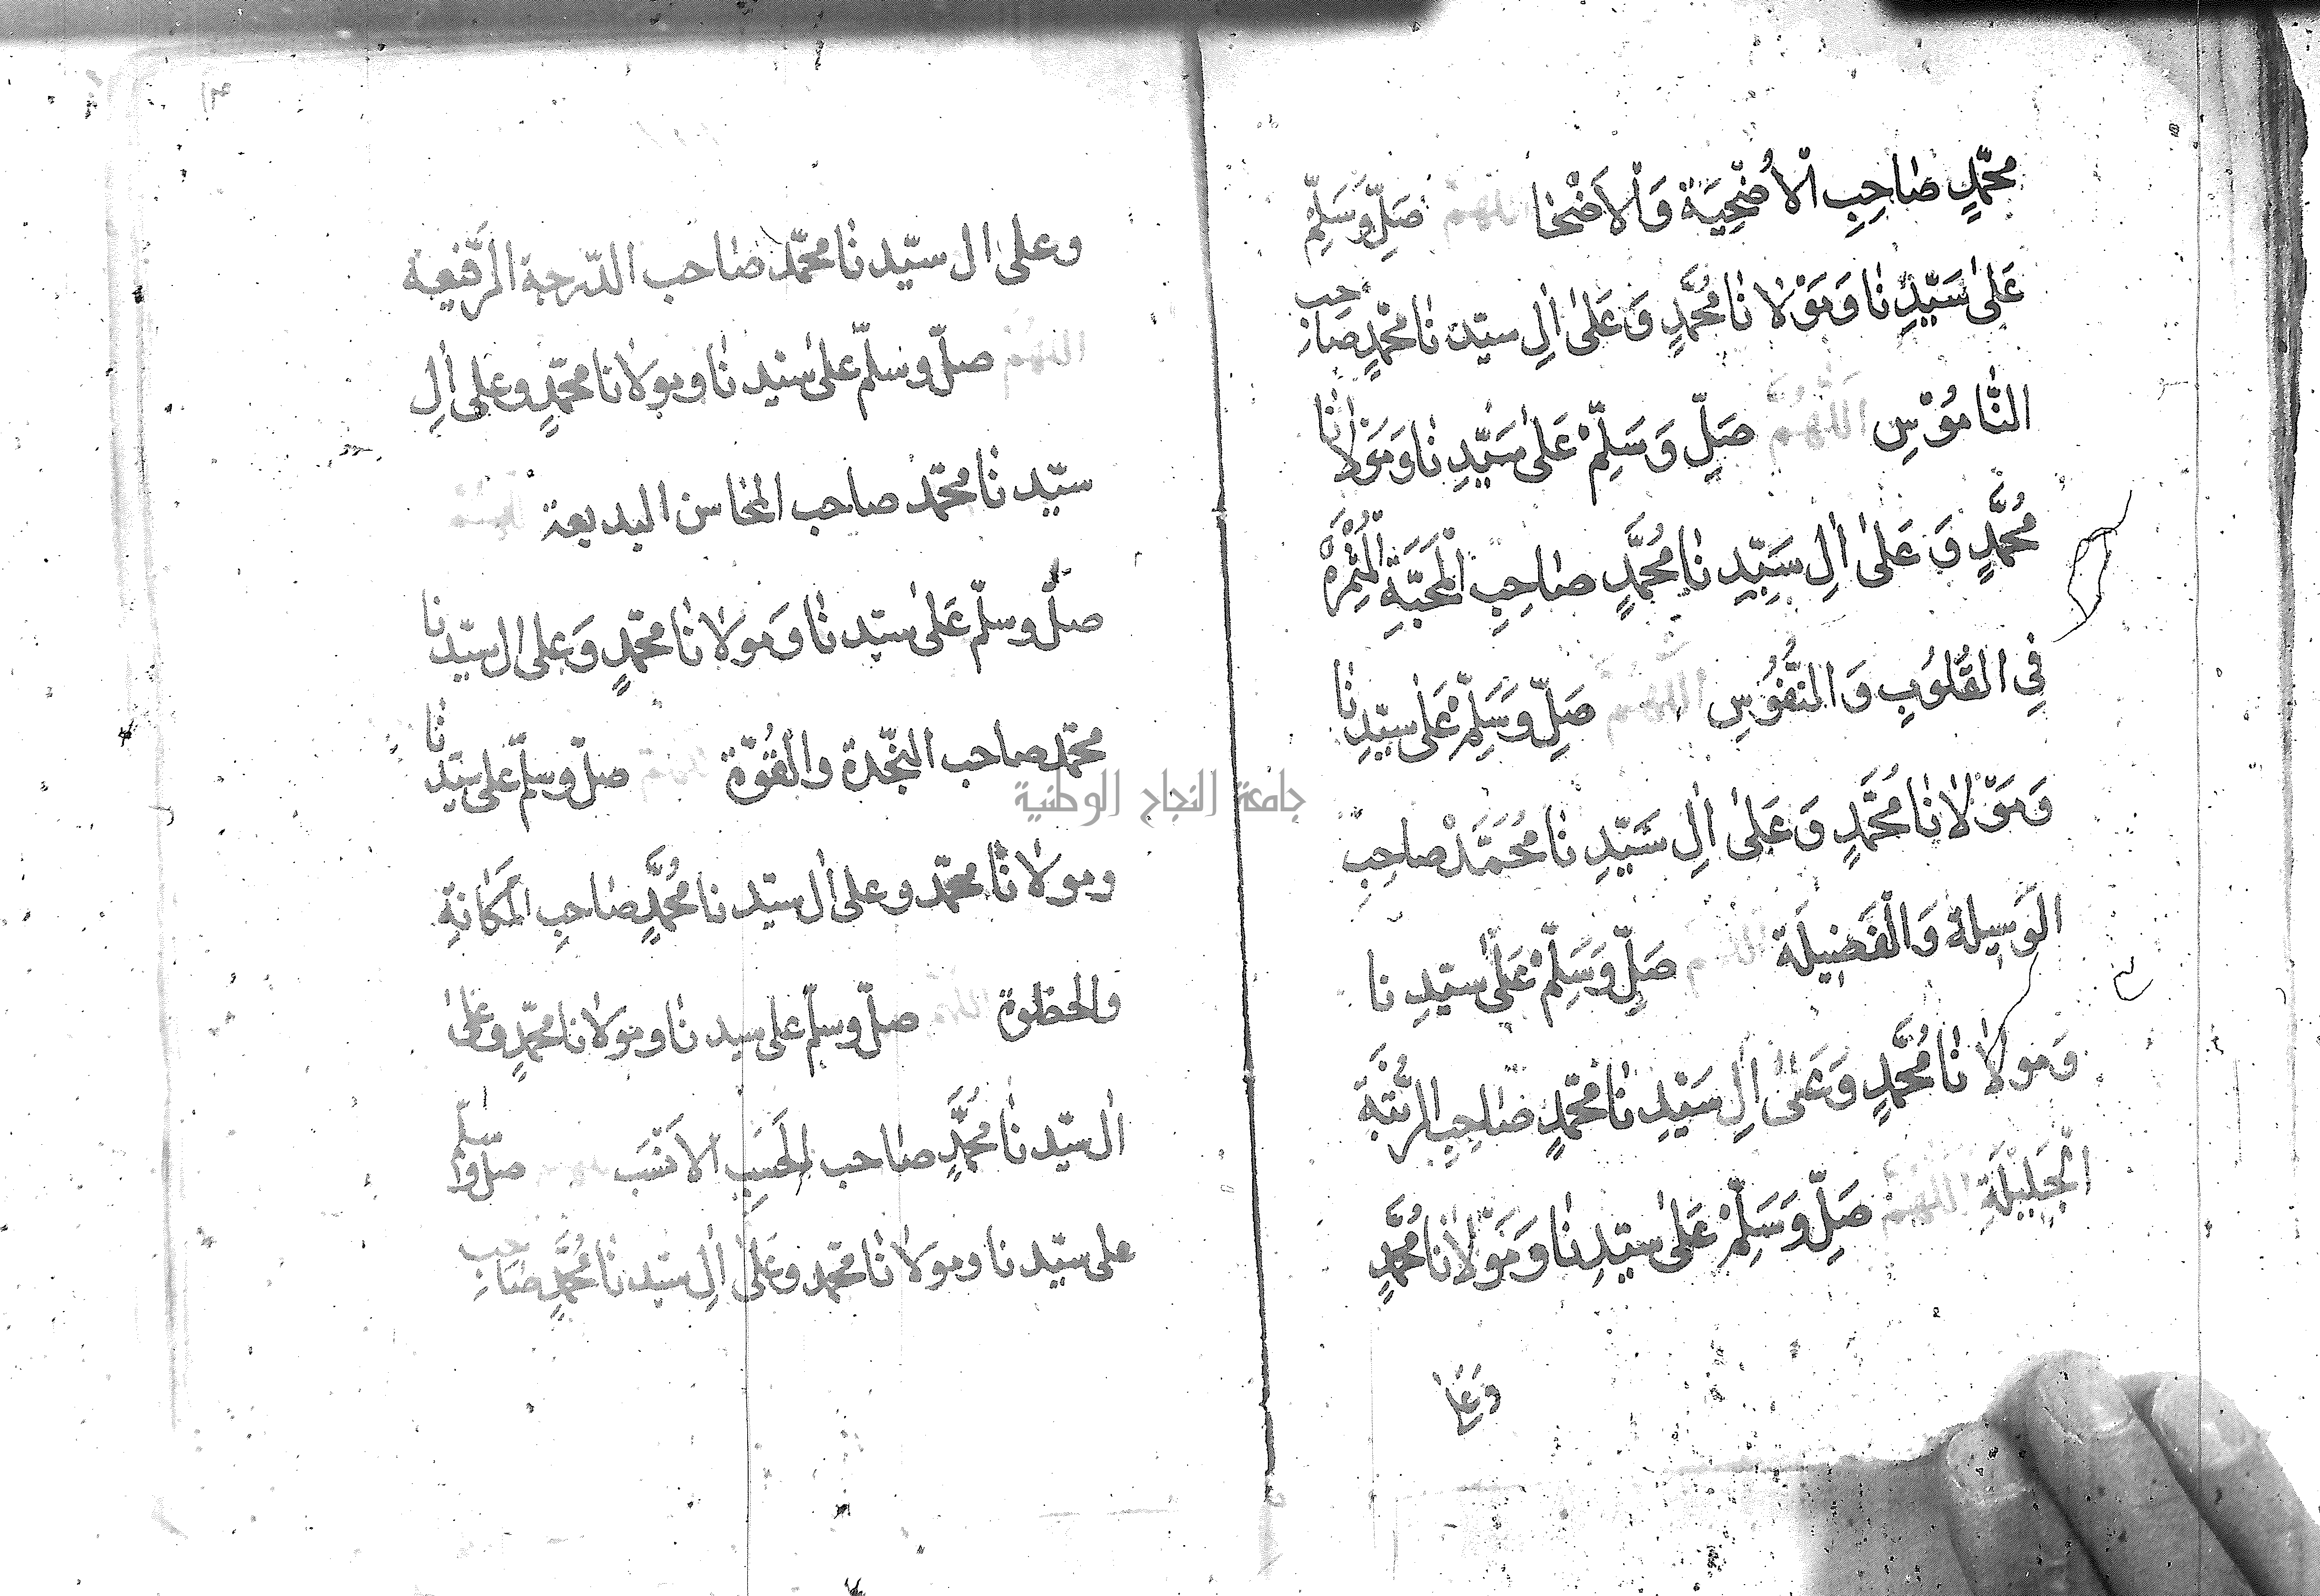 محمّدٍ صَاحِبِ الْاُضْحِيَة وَالْاَضْحَا اللهم صَلِّ وَسَلِّمْ
عَلىٰ سَيّدِنَا وَمَوْلَانَا مُحَمَّدٍ وَعَلىٰ اٰلِ سيّدنَا محمّدٍ صَاحب
النَّامُوْسِ اللّٰهُمَّ صَلِّ وَسَلِّمْ عَلىٰ سَيّدِنَا وَمَوْلَانَا
مُحَمَّدٍ وَعَلىٰ اٰلِ سَيّدِنَا مُحَمَّدٍ صَاحِبِ الْمَحَبَّةِ الْمُثْمِرَةْ
فِي القُلُوبِ وَالنُّفُوْسِ اللهم صَلِّ وَسَلِّمْ عَلىٰ سيّدِنَا
وَمَوْلَانَا مُحَمَّدٍ وَعَلىٰ اٰلِ سَيّدِنَا مُحَمَّدْ صاحِبِ
الْوَسِيلة وَالْفَضِيلَة اللهم صَلِّ وَسَلِّمْ عَلىٰ سيّدِنا
وَمولَانَا مُحَمَّدٍ وَعَلىٰ اٰلِ سَيّدِنَا محمّدٍ صَاحِبِ الرُّتْبَة
الْجَلِيْلَةِ اللهم صَلِّ وَسَلِّمْ عَلىٰ سيّدِنَا وَمَوْلَانَا مُحَمَّدٍ
وَعَلىٰ
وعلىٰ ال سيّدنَا محمّد صَاحب الدّرجة الرَّفيعة
اللهم صلّ وسلّم علىٰ سيّدنَا ومولَانا محمّدٍ وعلى اٰلِ
سيّدنَا محمّد صاحب المحَاسن البديعة اللهم
صلّ وسلّم عَلىٰ سيّدنَا وَمولَانَا محمّدٍ وَعلىٰ ال سيّدنَا
محمّد صاحب النّجْدة والْقُوّة اللهم صلّ وسلّم على سيّدنَا
ومولَانَا محمّد وعلىٰ اٰل سيّدنا مُحَمَّدٍ صَاحِبِ المَكَانَةِ
والحظوة اللهم صلّ وسلّم على سيدنَا ومولَانا محمّدٍ وعَلىٰ
اٰل سيّدنَا مُحَمَّدٍ صَاحب الْحَسَبِ الاَنْسَب اللهم صلّ وسلّم
على سيّدنا ومولَانَا محمّد وعَلىٰ اٰلِ سيّدنَا مُحَمَّدٍ صَاحب
جامعة النجاح الوطنية